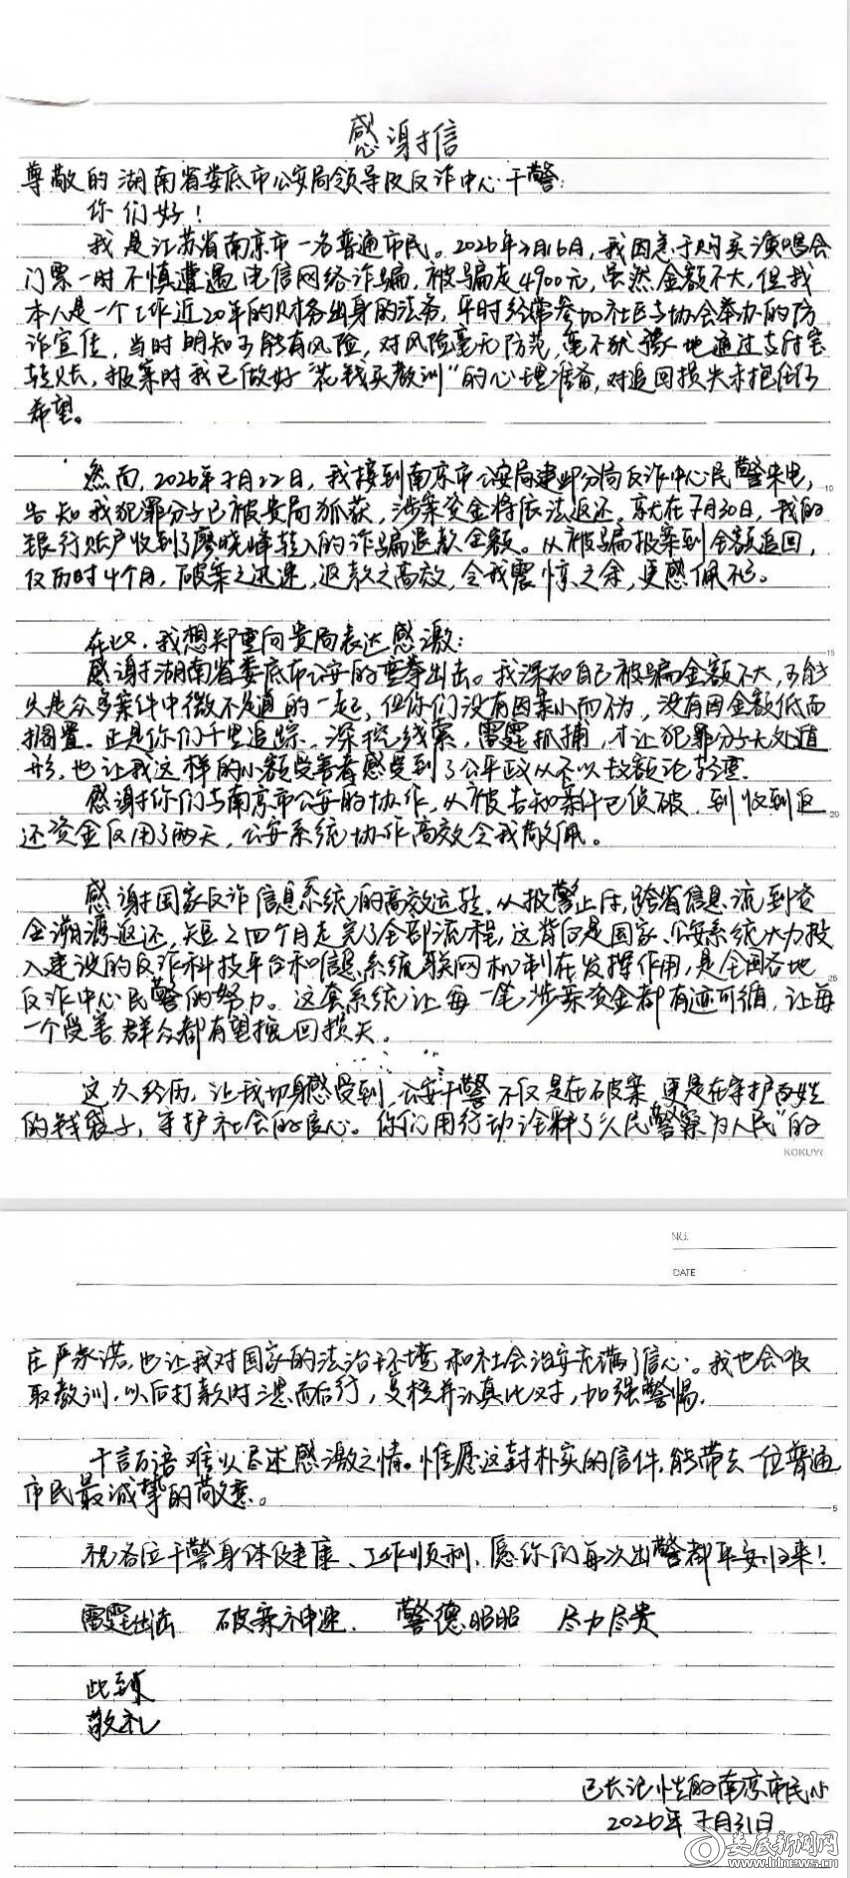 感谢信
尊敬的湖南省娄底市公安局领导及反诈中心干警:
你们好!
我是江苏省南京市一名普通市民。2026年3月16日,我因急于购买演唱会
门票一时不慎遭遇电信网络诈骗,被骗走4900元,虽然金额不大,但我
本人是一个工作近20年的财务出身的法务,平时经常参加社区与协会举办的防
诈宣传,当时明知可能有风险,对风险毫无防范,毫不犹豫地通过支付宝
转账,报案时我已做好“花钱买教训”的心理准备,对追回损失未抱任何
希望。
然而,2026年7月22日,我接到南京市公安局建邺分局反诈中心民警来电,
告知我犯罪分子已被贵局抓获,涉案资金将依法返还。就在7月30日,我的
银行账户收到了廖晓峰转入的诈骗退款全额。从被骗报案到全额追回,
仅历时4个月,破案之迅速,返款之高效,令我震惊之余,更感佩不已。
在此,我想郑重向贵局表达感激:
感谢湖南省娄底市公安的重拳出击。我深知自己被骗金额不大,可能
只是众多案件中微不足道的一起,但你们没有因案小而不为,没有因金额低而
搁置。正是你们千里追踪,深挖线索,雷霆抓捕,才让犯罪分子无处遁
形,也让我这样的小额受害者感受到了公平正义从不以数额论轻重.
感谢你们与南京市公安的协作,从被告知案件已侦破,到收到返
还资金仅用了两天,公安系统协作高效令我敬佩。
感谢国家反诈信息系统的高效运转,从报警止付,跨省信息流到资
金溯源返还,短短四个月走完了全部流程,这背后是国家、公安系统大力投
入建设的反诈科技平台和信息系统联网机制在发挥作用,是全国各地
反诈中心民警的努力。这套系统让每一笔涉案资金都有迹可循,让每
一个受害群众都有望挽回损失.
这次经历,让我切身感受到,公安干警不仅是在破案,更是在守护百姓
的钱袋子,守护社会的良心。你们用行动诠释了“人民警察为人民”的
KOKUYO
NO.
DATE
庄严承诺,也让我对国家的法治环境和社会治安充满了信心。我也会吸
取教训,以后打款时三思而后行,复核并认真比对,加强警惕.
千言万语难以尽述感激之情。惟愿这封朴实的信件,能带去一位普通
市民最诚挚的敬意。
祝各位干警身体健康、工作顺利,愿你们每次出警都平安归来!
雷霆出击 破案神速. 警德昭昭 尽力尽责
此致
敬礼
已长记性的南京市民
2026年7月31日
娄底新闻网
www.ldnews.cn